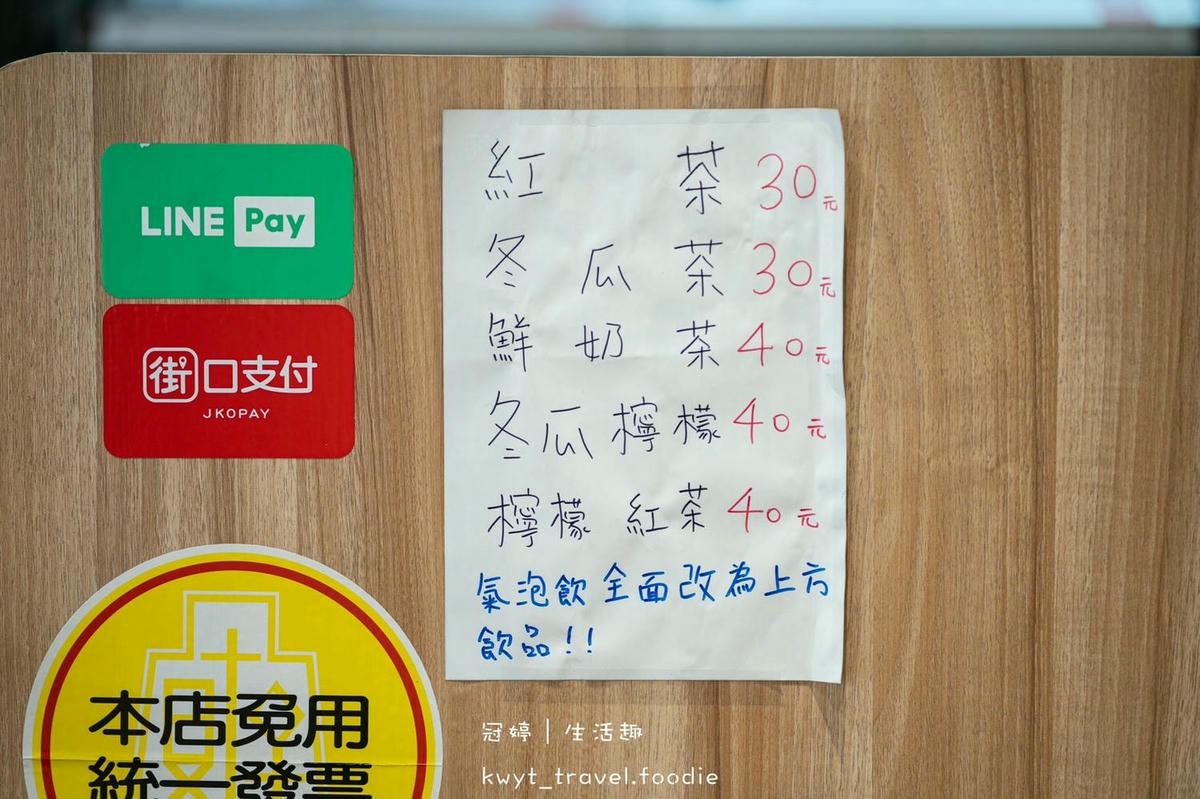 LINE Pay
街口支付
JKOPAY
紅茶 30元
冬瓜茶 30元
鮮奶茶 40元
冬瓜檸檬 40元
檸檬紅茶 40元
氣泡飲全面改為上方
飲品!!
本店免用
統一發票
冠婷 | 生活趣
kwyt_travel.foodie